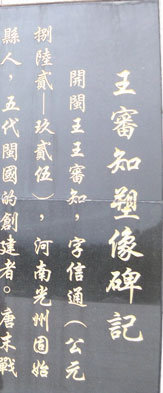 王審知塑像碑記
開閩王王審知，字信通（公元
捌陸貳—玖貳伍），河南光州固始
縣人，五代閩國的創建者。唐末戰